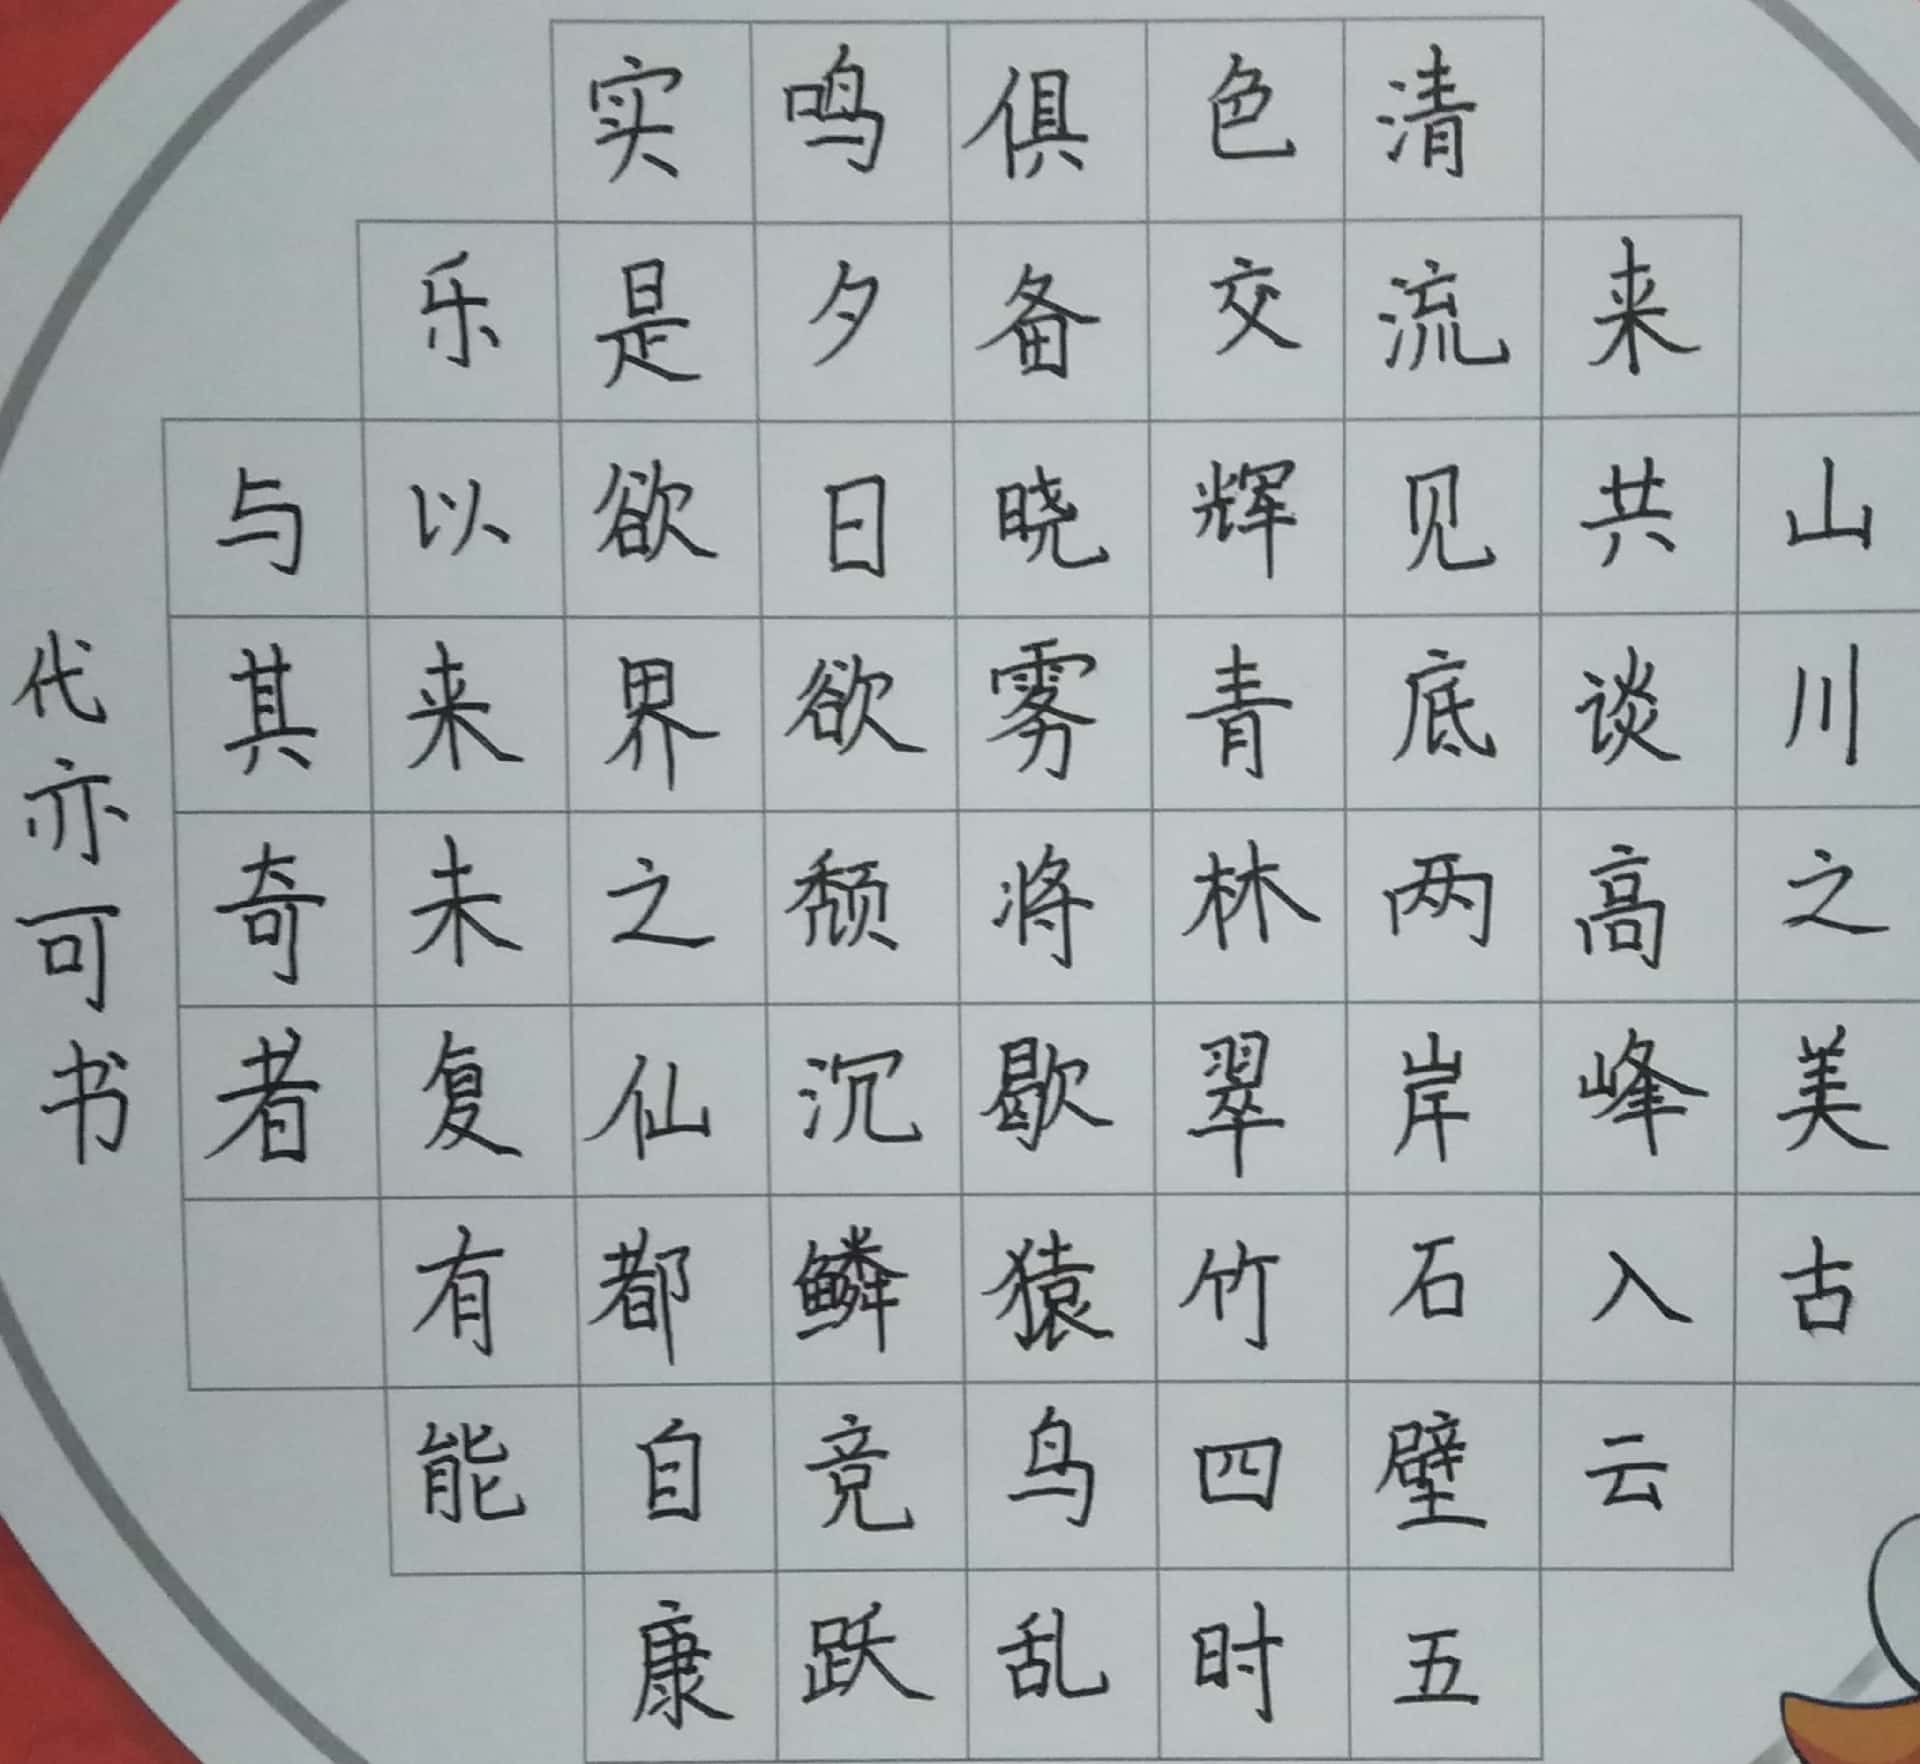 山川之美古
来共谈高峰入云
清流见底两岸石壁五
色交辉青林翠竹四时
俱备晓雾将歇猿鸟乱
鸣夕日欲颓沉鳞竞跃
实是欲界之仙都自康
乐以来未复有能
与其奇者
代亦可书